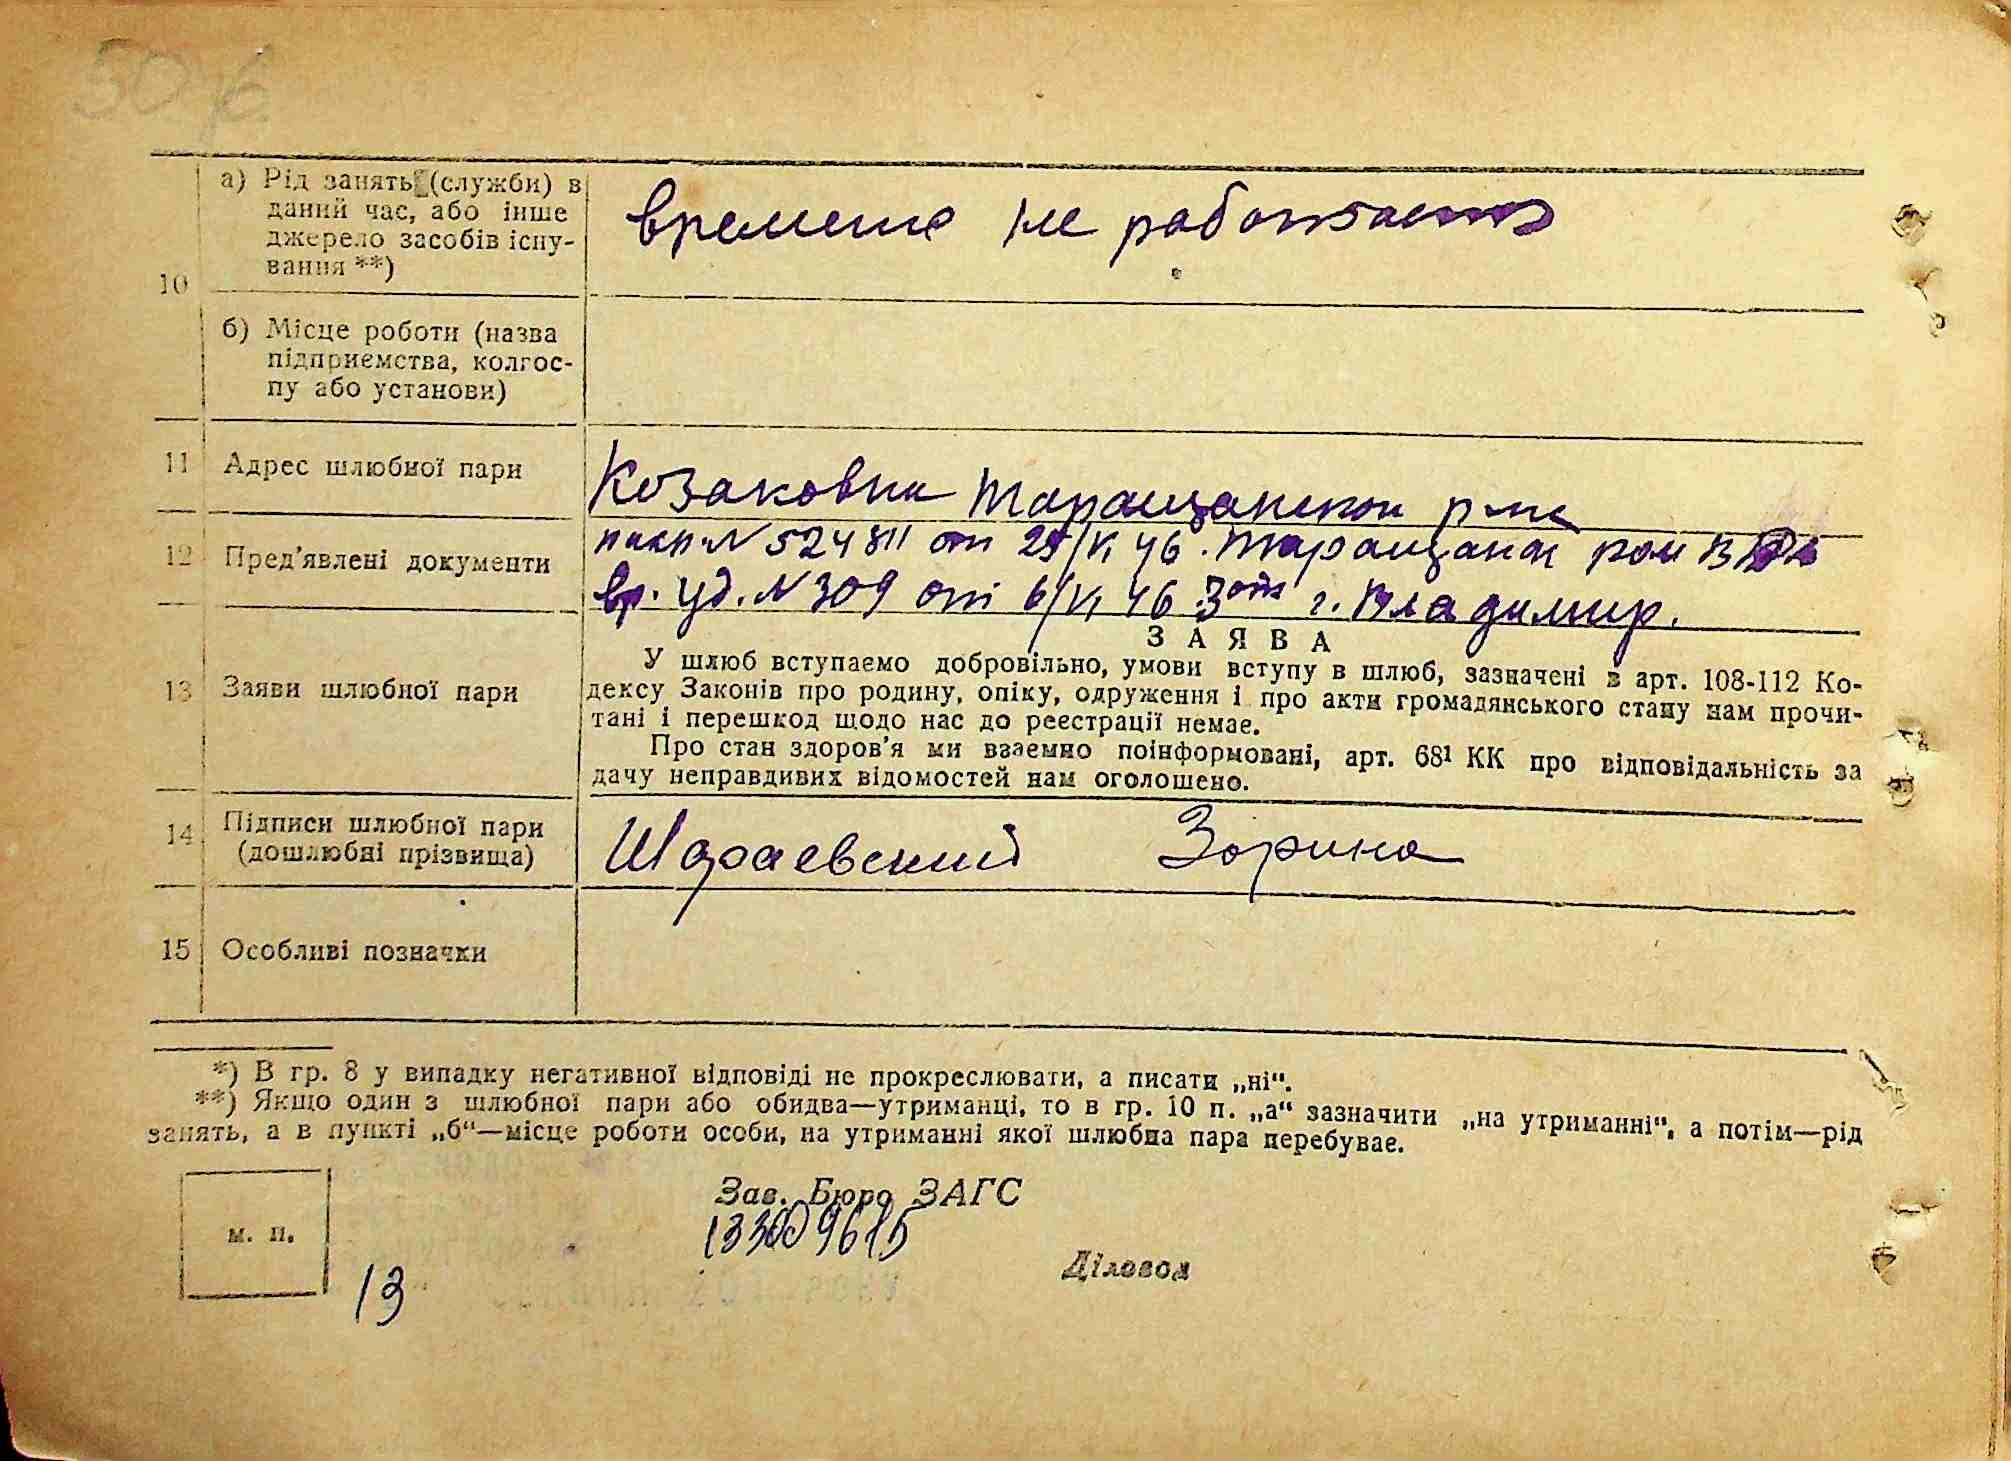 а) Рід занять (служби) в
даний час, або інше
джерело засобів існу-
вання **)
временно не работают
10
б) Місце роботи (назва
підприємства, колгос-
пу або установи)
11 Адрес шлюбної пари
Козаковка Таращанского р-на
12 Пред'явлені документи
пасп. № 524811 от 25/VI 46. Таращанск
вр. уд. № 309 от 6/VI 46 3 отд г. Владимир.
13 Заяви шлюбної пари
ЗАЯВА
У шлюб вступаємо добровільно, умови вступу в шлюб, зазначені в арт. 108-112 Ко-
дексу Законів про родину, опіку, одруження і про акти громадянського стану нам прочи-
тані і перешкод щодо нас до реєстрації немає.
Про стан здоров'я ми взаємно поінформовані, арт. 68¹ КК про відповідальність за
дачу неправдивих відомостей нам оголошено.
14 Підписи шлюбної пари
(дошлюбні прізвища)
Шараевский Зорина
15 Особливі позначки
*) В гр. 8 у випадку негативної відповіді не прокреслювати, а писати „ні“.
**) Якщо один з шлюбної пари або обидва—утриманці, то в гр. 10 п. „а“ зазначити „на утриманні“, а потім—рід
занять, а в пункті „б“—місце роботи особи, на утриманні якої шлюбна пара перебуває.
м. п.
Зав. Бюро ЗАГС
Діловод
13